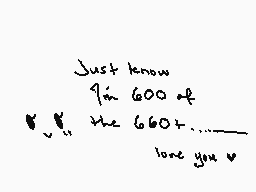 Just know
I'm 600 of
the 660+...
love you ♥